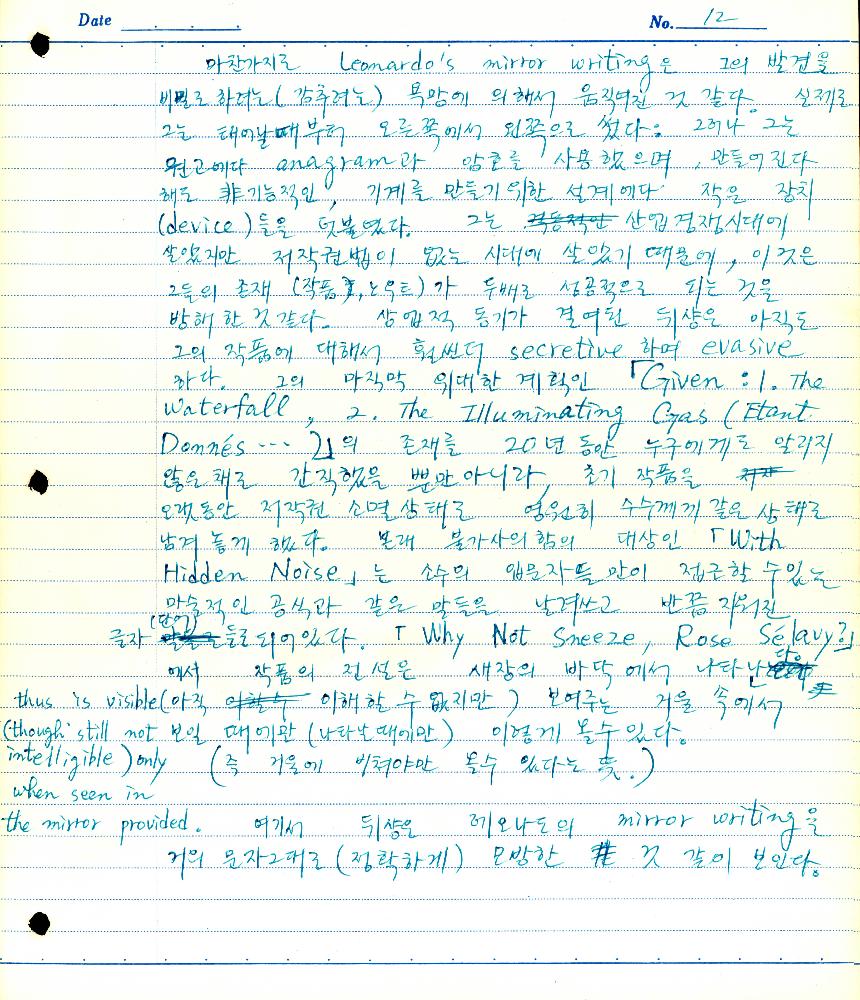 Date
No. 12
마찬가지로 Leonardo's mirror writing은 그의 발견을
비밀로 하려는(감추려는) 욕망에 의해서 움직여진 것 같다. 실제로
그는 태어날때부터 오른쪽에서 왼쪽으로 썼다: 그러나 그는
원고에다 anagram과 암호를 사용했으며, 만들어진다
해도 非기능적인, 기계를 만들기 위한 설계에다 작은 장치
(device)들을 덧붙였다. 그는 산업경쟁시대에
살았지만 저작권법이 없는 시대에 살았기 때문에, 이것은
그들의 존재 (작품, 노우트)가 두배로 성공적으로 되는 것을
방해한 것 같다. 상업적 동기가 결여된 뒤샹은 아직도
그의 작품에 대해서 훨씬더 secretive 하며 evasive
하다. 그의 마지막 위대한 계획인 「Given : 1. The
Waterfall, 2. The Illuminating Gas (Etant
Donnés ... )」의 존재를 20년 동안 누구에게도 알리지
않은 채로 간직했을 뿐만 아니라, 초기 작품을
오랫동안 저작권 소멸 상태로 영원히 수수께끼 같은 상태로
남겨 놓게 했다. 본래 불가사의함의 대상인 「With
Hidden Noise」는 소수의 입문자들만이 접근할 수 있는
마술적인 공식과 같은 말들을 날려쓰고 반쯤 지워진
글자(단어)들로 되어있다. 「Why Not Sneeze, Rose Sélavy?」
에서 작품의 전설은 새장의 바닥에서 나타난다.
thus is visible(아직 이해할 수 없지만) 보여주는 거울 속에서
(though still not 보일 때에만 (나타날 때에만) 이렇게 볼수 있다.
intelligible) only (즉 거울에 비쳐야만 볼수 있다는 뜻.)
when seen in
the mirror provided. 여기서 뒤샹은 레오나도의 mirror writing을
거의 문자그대로 (정확하게) 모방한 것 같이 보인다.